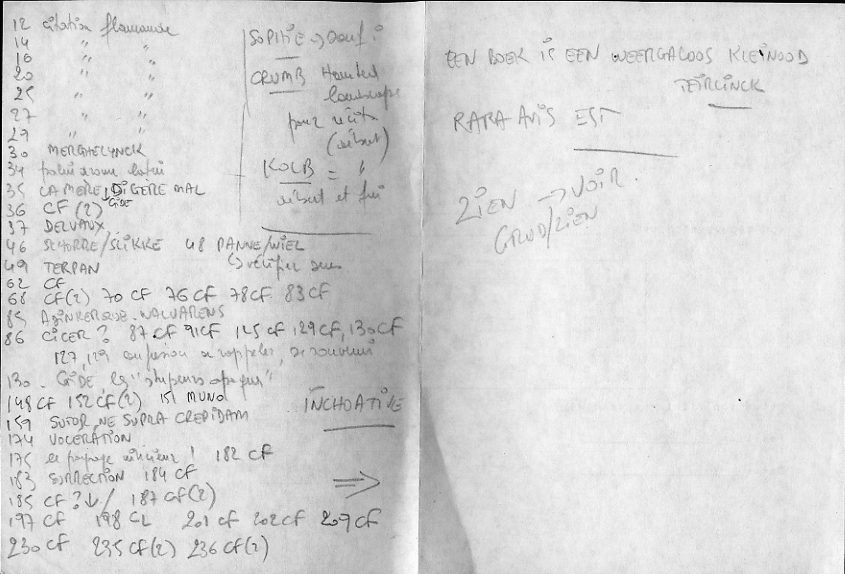 12 citation flamande
14 " "
16 " "
20 " "
25 " "
27 " "
29 " "
30 MERGHELYNCK
34
35 LA MÈRE, DIGÈRE MAL
GIDE
36 CF (2)
37 DELVAUX
46 SCHORRE/SLIKKE 48 PANNE/WIEL
49 TERPAN
62 CF
68 CF(2) 70 CF 76 CF 78 CF 83 CF
85 ADINKERQUE
86 CICER ? 87 CF 91 CF 125 CF 129 CF, 130 CF
127, 129 confusion se rappeler, se souvenir
130. GIDE les
148 CF 152 CF(2) 151 MUNO
159 SUTOR, NE SUPRA CREPIDAM
174 VOCERATION
175 le paysage intérieur ! 182 CF
183 SURRECTION 184 CF
185 CF ?↓/ 187 CF(2)
197 CF 198 CL 201 CF 202 CF 209 CF
230 CF 235 CF(2) 236 CF(2)
SOPHIE →
CRUMB Haunted
landscape
pour récits
(début)
KOLB = "
début et fin
INCHOATIVE
⇒
EEN BOEK IS EEN WEERGALOOS KLEINOOD
TEIRLINCK
RARA AVIS EST
ZIEN → VOIR.
/ZIEN